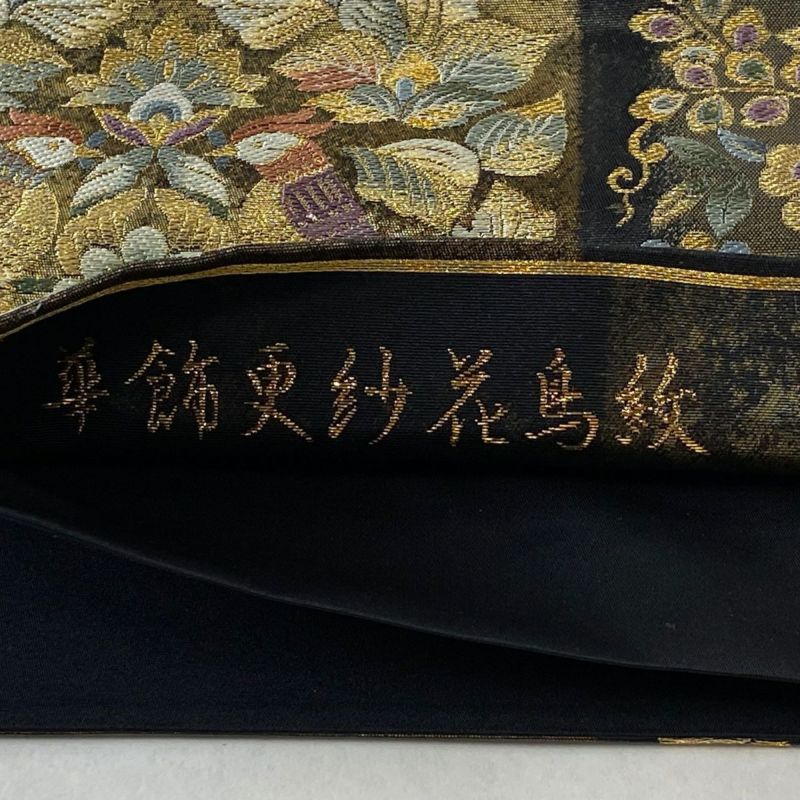 華飾更紗花鳥紋